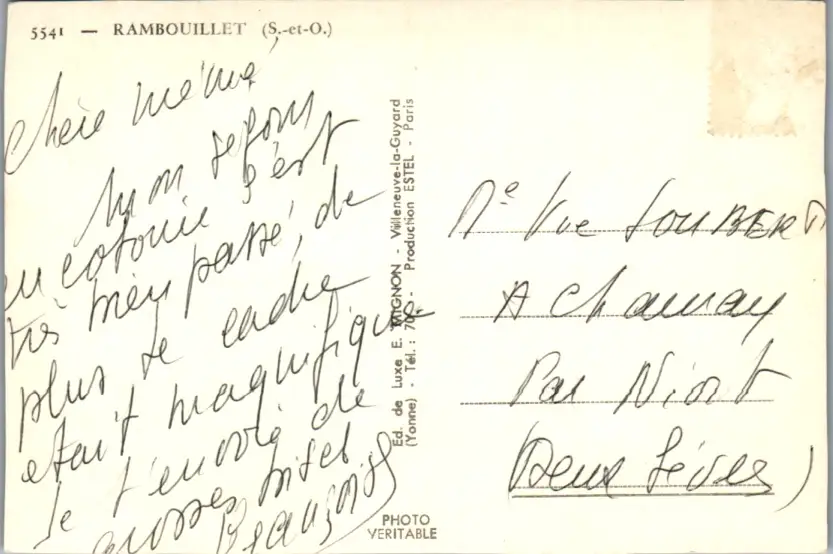 5541 — RAMBOUILLET (S.-et-O.)
Chère mémé
Mon séjour
en colonie s'est
très bien passé, de
plus le cadre
etait magnifique
Je t'envoie de
grosses bises
Ed. de Luxe E. MIGNON - Villeneuve-la-Guyard
(Yonne) - Tél. : 70 - Production ESTEL - Paris
PHOTO
VERITABLE
Me Vve JOUBERT
A Chauray
Par Niort
(Deux Sèvres)